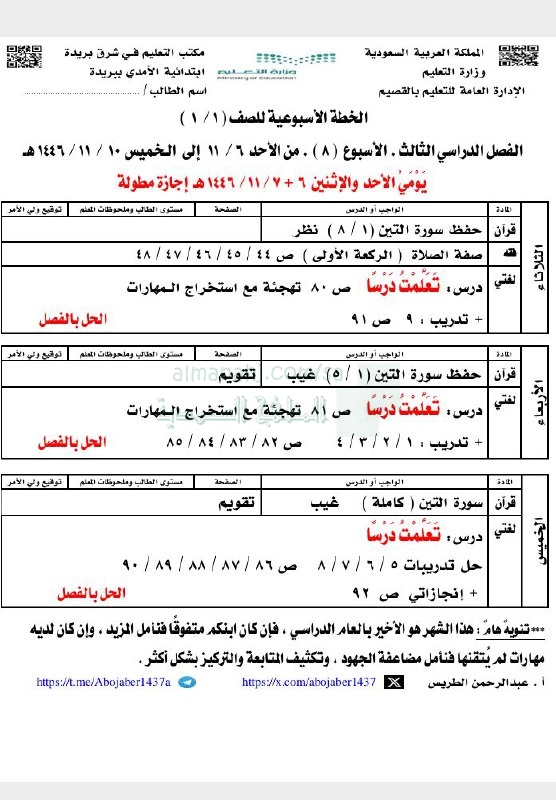 المملكة العربية السعودية
وزارة التعليم
الإدارة العامة للتعليم بالقصيم
وزارة التعليم
Ministry of Education
مكتب التعليم في شرق بريدة
ابتدائية الأمدي ببريدة
اسم الطالب / ........................................
الخطة الأسبوعية للصف ( ١ / ١ )
الفصل الدراسي الثالث . الأسبوع ( ٨ ) . من الأحد ٦ / ١١ إلى الخميس ١٠ / ١١ / ١٤٤٦ هـ
يَوْمَيُ الأحد والإثنين ٦ + ٧ / ١١ / ١٤٤٦ هـ إجازة مطولة
الثلاثاء
المادة الواجب أو الدرس الصفحة مستوى الطالب وملحوظات المعلم توقيع ولي الأمر
قرآن حفظ سورة التين ( ١ / ٨ ) نظر
فقه صفة الصلاة ( الركعة الأولى ) ص ٤٤ / ٤٥ / ٤٦ / ٤٧ / ٤٨
لغتي درس : تَعَلَّمْتُ دَرْسًا ص ٨٠ تهجئة مع استخراج المهارات
+ تدريب : ٩ ص ٩١ الحل بالفصل
الأربعاء
المادة الواجب أو الدرس الصفحة مستوى الطالب وملحوظات المعلم توقيع ولي الأمر
قرآن حفظ سورة التين ( ١ / ٥ ) غيب تقويم
لغتي درس : تَعَلَّمْتُ دَرْسًا ص ٨١ تهجئة مع استخراج المهارات
+ تدريب : ١ / ٢ / ٣ / ٤ ص ٨٢ / ٨٣ / ٨٤ / ٨٥ الحل بالفصل
الخميس
المادة الواجب أو الدرس الصفحة مستوى الطالب وملحوظات المعلم توقيع ولي الأمر
قرآن سورة التين ( كاملة ) غيب تقويم
لغتي درس : تَعَلَّمْتُ دَرْسًا
حل تدريبات ٥ / ٦ / ٧ / ٨ ص ٨٦ / ٨٧ / ٨٨ / ٨٩ / ٩٠
+ إنجازاتي ص ٩٢ الحل بالفصل
***تنويهٌ هامٌ : هذا الشهر هو الأخير بالعام الدراسي ، فإن كان ابنكم متفوقًا فنأمل المزيد ، وإن كان لديه
مهارات لم يُتقنها فنأمل مضاعفة الجهود ، وتكثيف المتابعة والتركيز بشكل أكثر .
أ . عبدالرحمن الطريس https://x.com/abojaber1437 https://t.me/Abojaber1437a